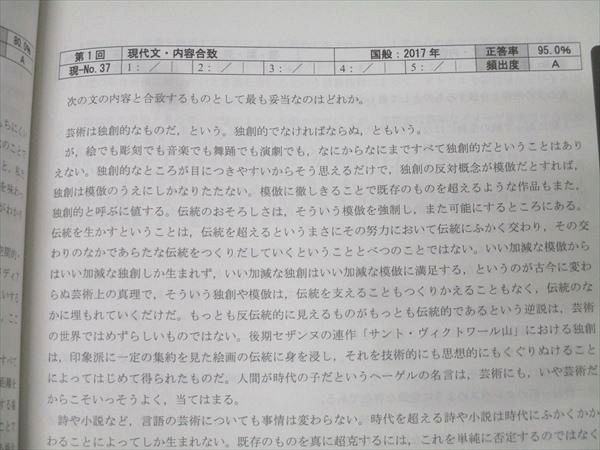 80.0%
A
第1回 現代文・内容合致 国般:2017年 正答率 95.0%
現-No.37 1: ／ 2: ／ 3: ／ 4: ／ 5: ／ 頻出度 A
次の文の内容と合致するものとして最も妥当なのはどれか。
芸術は独創的なものだ,という。独創的でなければならぬ,ともいう。
が,絵でも彫刻でも音楽でも舞踊でも演劇でも,なにからなにまですべて独創的だということはあり
えない。独創的なところが目につきやすいからそう思えるだけで,独創の反対概念が模倣だとすれば,
独創は模倣のうえにしかなりたたない。模倣に徹しきることで既存のものを超えるような作品もまた,
独創的と呼ぶに値する。伝統のおそろしさは,そういう模倣を強制し,また可能にするところにある。
伝統を生かすということは,伝統を超えるというまさにその努力において伝統にふかく交わり,その交
わりのなかであらたな伝統をつくりだしていくということとべつのことではない。いい加減な模倣から
はいい加減な独創しか生まれず,いい加減な独創はいい加減な模倣に満足する,というのが古今に変わ
らぬ芸術上の真理で,そういう独創や模倣は,伝統を支えることもつくりかえることもなく,伝統のな
かに埋もれていくだけだ。もっとも反伝統的に見えるものがもっとも伝統的であるという逆説は,芸術
の世界ではめずらしいものではない。後期セザンヌの連作「サント・ヴィクトワール山」における独創
は,印象派に一定の集約を見た絵画の伝統に身を浸し,それを技術的にも思想的にもくぐりぬけること
によってはじめて得られたものだ。人間が時代の子だというヘーゲルの名言は,芸術にも,いや芸術だ
からこそいっそうよく,当てはまる。
詩や小説など,言語の芸術についても事情は変わらない。時代を超える詩や小説は時代にふかくかか
わることによってしか生まれない。既存のものを真に超克するには,これを単純に否定するのではなく